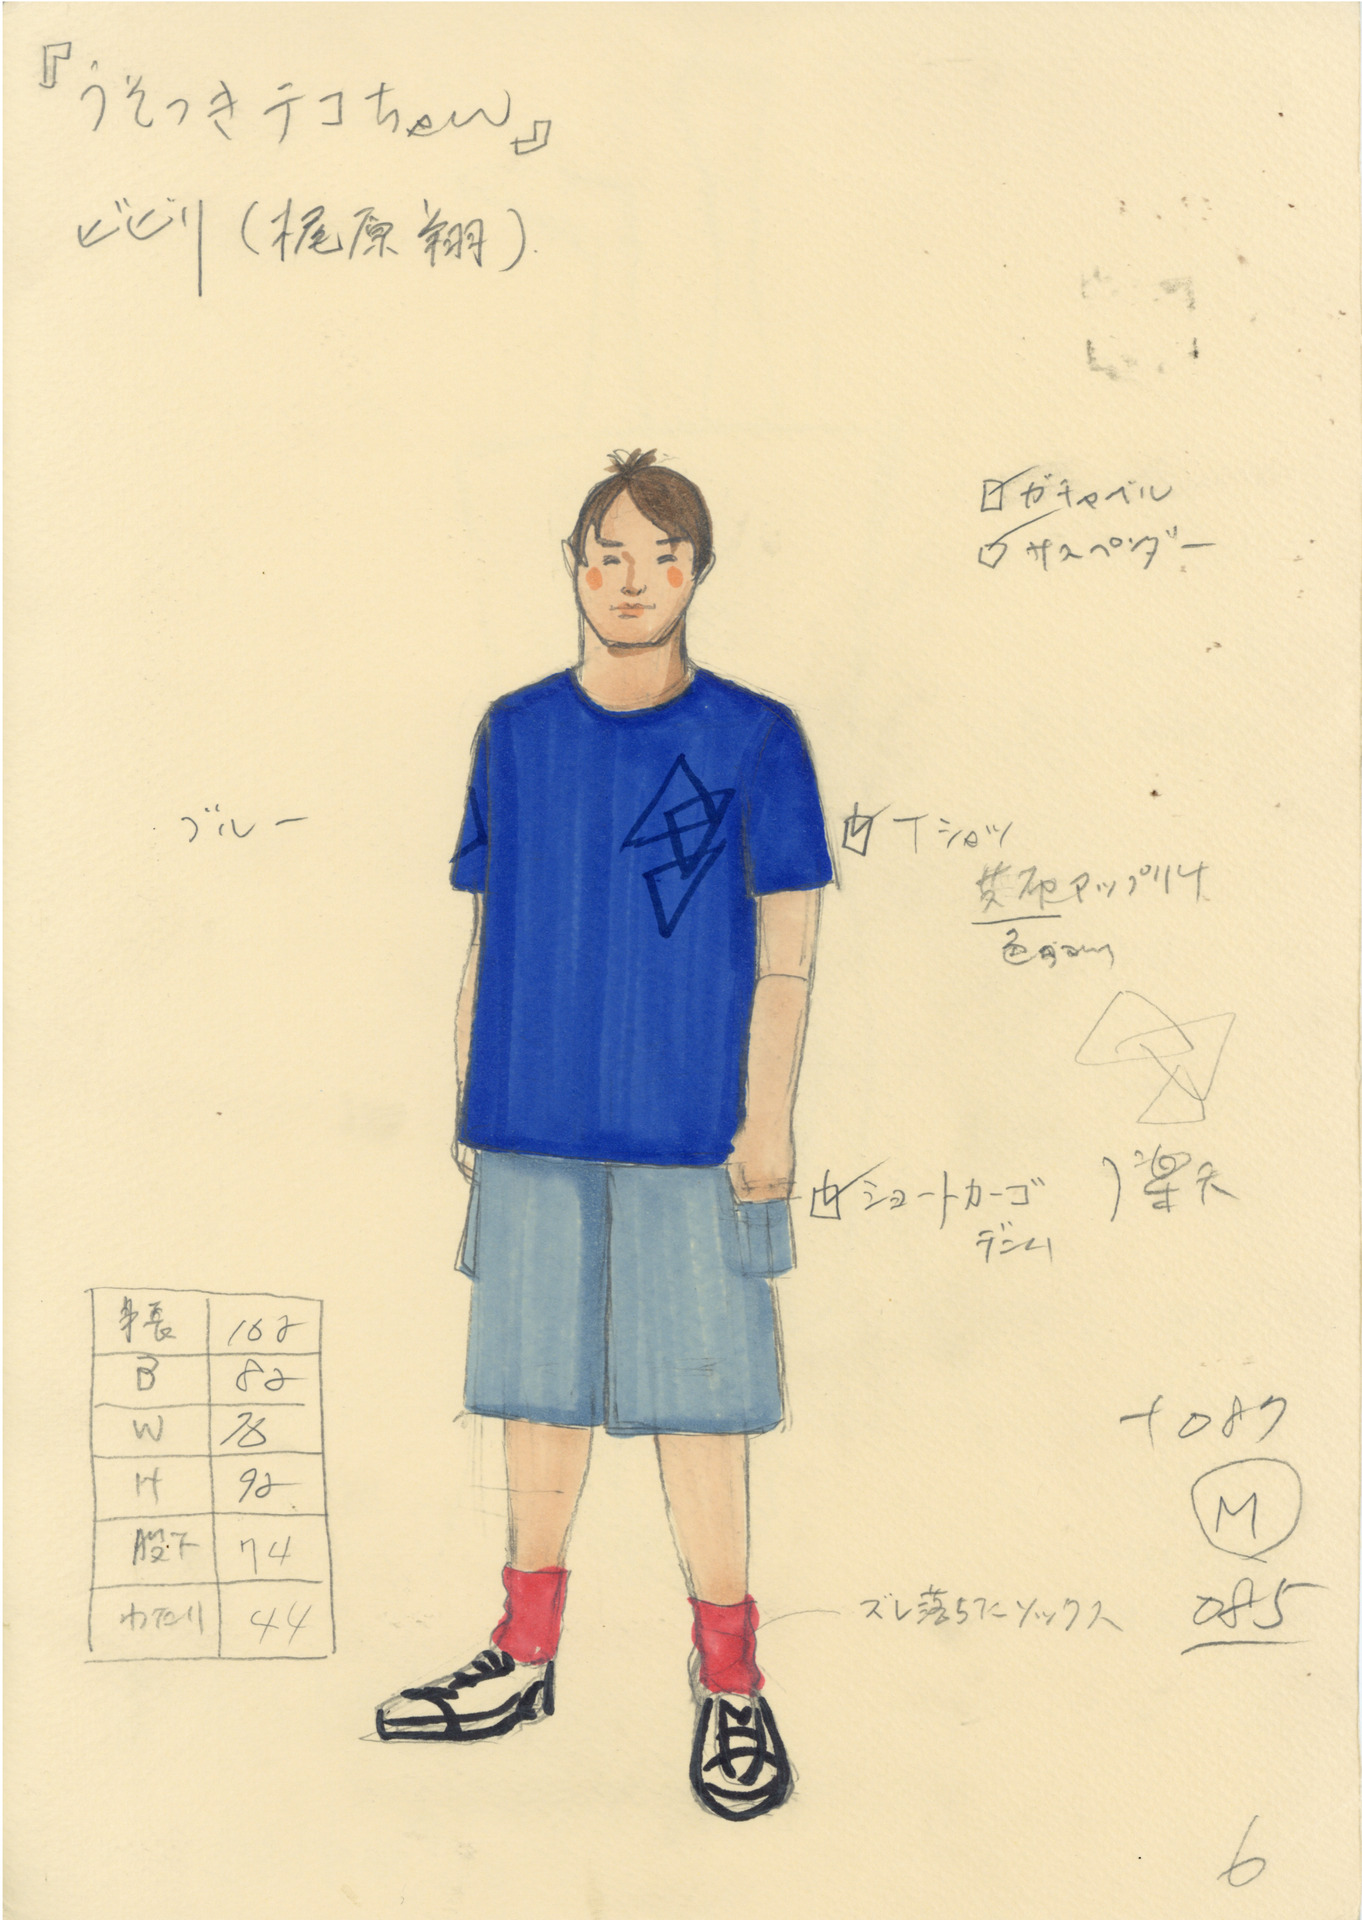 『うそつきテコちゃん』
ビビリ(梶原 翔)
ガチャベル
サスペンダー
ブルー
Tシャツ
アップリケ
ショートカーゴ
デニム
楽天
身長 162
B 82
W 78
H 92
股下 74
わたり 44
087
M
085
ズレ落ちたソックス
6